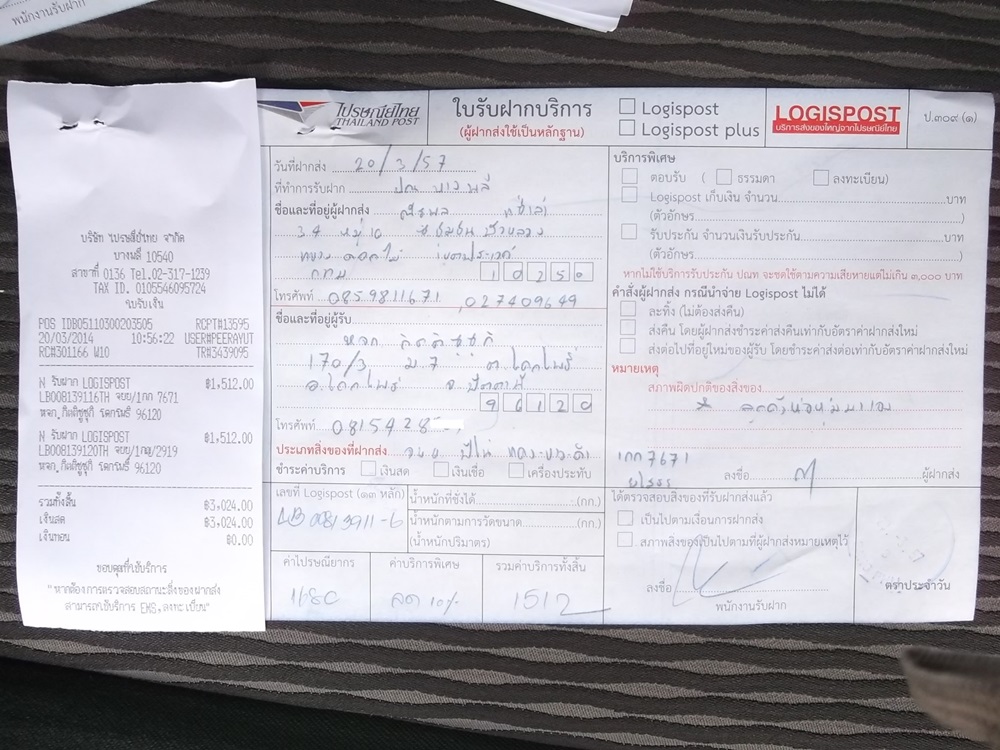 พนักงานรับฝาก
บริษัท ไปรษณีย์ไทย จำกัด
บางพลี 10540
สาขาที่ 0136 Tel.02-317-1239
TAX ID. 0105546095724
ใบรับเงิน
POS IDB05110300203505 RCPT#13595
20/03/2014 10:56:22 USER#PEERAYUT
RC#301166 W10 TR#3439095
N รับฝาก LOGISPOST ฿1,512.00
LB008139116TH จยย/1กก 7671
หจก.กิตติซูซูกิ 96120
N รับฝาก LOGISPOST ฿1,512.00
LB008139120TH จยย/1กญ/2919
หจก.กิตติซูซูกิ 96120
รวมทั้งสิ้น ฿3,024.00
เงินสด ฿3,024.00
เงินทอน ฿0.00
ขอบคุณที่ใช้บริการ
"หากต้องการตรวจสอบสถานะสิ่งของฝากส่ง
สามารถใช้บริการ EMS,ลงทะเบียน"
ไปรษณีย์ไทย
THAILAND POST
ใบรับฝากบริการ
(ผู้ฝากส่งใช้เป็นหลักฐาน)
Logispost
Logispost plus
LOGISPOST
บริการส่งของใหญ่จากไปรษณีย์ไทย
ป.๓๐๙ (๑)
วันที่ฝากส่ง 20/3/57
ที่ทำการรับฝาก ปณ บางพลี
ชื่อและที่อยู่ผู้ฝากส่ง
34 หมู่ 10
แขวง ดอกไม้ เขตประเวศ
กทม 10250
โทรศัพท์ 0859811671, 027409649
ชื่อและที่อยู่ผู้รับ
หจก กิตติซูซูกิ
170/3 ม.7 ต.โคกโพธิ์
อ.โคกโพธิ์ จ.ปัตตานี
96120
โทรศัพท์ 0815428
ประเภทสิ่งของที่ฝากส่ง
ชำระค่าบริการ เงินสด เงินเชื่อ เครื่องประทับ
เลขที่ Logispost (๑๓ หลัก)
LB 00813911-6
น้ำหนักที่ชั่งได้ (กก.)
น้ำหนักตามการวัดขนาด (กก.)
(น้ำหนักปริมาตร)
ค่าไปรษณียากร ค่าบริการพิเศษ รวมค่าบริการทั้งสิ้น
1680 ลด 10% 1512
บริการพิเศษ
ตอบรับ ( ธรรมดา ลงทะเบียน)
Logispost เก็บเงิน จำนวน บาท
(ตัวอักษร )
รับประกัน จำนวนเงินรับประกัน บาท
(ตัวอักษร )
หากไม่ใช้บริการรับประกัน ปณท จะชดใช้ตามความเสียหายแต่ไม่เกิน ๓,๐๐๐ บาท
คำสั่งผู้ฝากส่ง กรณีนำจ่าย Logispost ไม่ได้
ละทิ้ง (ไม่ต้องส่งคืน)
ส่งคืน โดยผู้ฝากส่งชำระค่าส่งคืนเท่ากับอัตราค่าฝากส่งใหม่
ส่งต่อไปที่อยู่ใหม่ของผู้รับ โดยชำระค่าส่งต่อเท่ากับอัตราค่าฝากส่งใหม่
หมายเหตุ
สภาพผิดปกติของสิ่งของ
* ลูกค้าห่อหุ้มเอง
1กก7671
ยโสธร
ลงชื่อ ผู้ฝากส่ง
ได้ตรวจสอบสิ่งของที่รับฝากส่งแล้ว
เป็นไปตามเงื่อนการฝากส่ง
สภาพสิ่งของเป็นไปตามที่ผู้ฝากส่งหมายเหตุไว้
ลงชื่อ
พนักงานรับฝาก
ตราประจำวัน